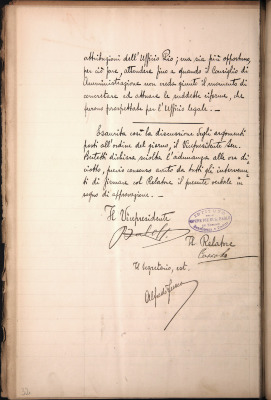 attribuzioni dell'Ufficio Pio; ma sia più opportuno,
per ciò fare, attendere fino a quando il Consiglio di
Amministrazione non creda giunto il momento di
concretare ed attuare le suddette riforme, che
furono prospettate per l'Ufficio legale. —
Esaurita così la discussione degli argomenti
posti all'ordine del giorno, il Vicepresidente Sen.
dichiara sciolta l'adunanza alle ore di-
ciotto, previo consenso avuto da tutti gli intervenu-
ti di firmare col Relatore il presente verbale in
segno di approvazione. —
Il Vicepresidente
Il Relatore
Il Segretario, est.
Alfredo